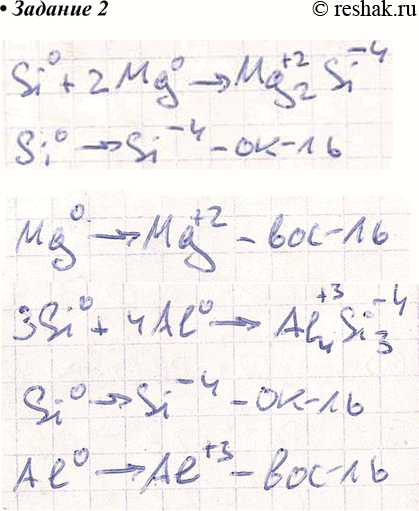 • Задание 2
© reshak.ru
Si⁰ + 2Mg⁰ → Mg₂⁺² Si⁻⁴
Si⁰ → Si⁻⁴ - ок-ль
Mg⁰ → Mg⁺² - вос-ль
3Si⁰ + 4Al⁰ → Al₄⁺³ Si₃⁻⁴
Si⁰ → Si⁻⁴ - ок-ль
Al⁰ → Al⁺³ - вос-ль